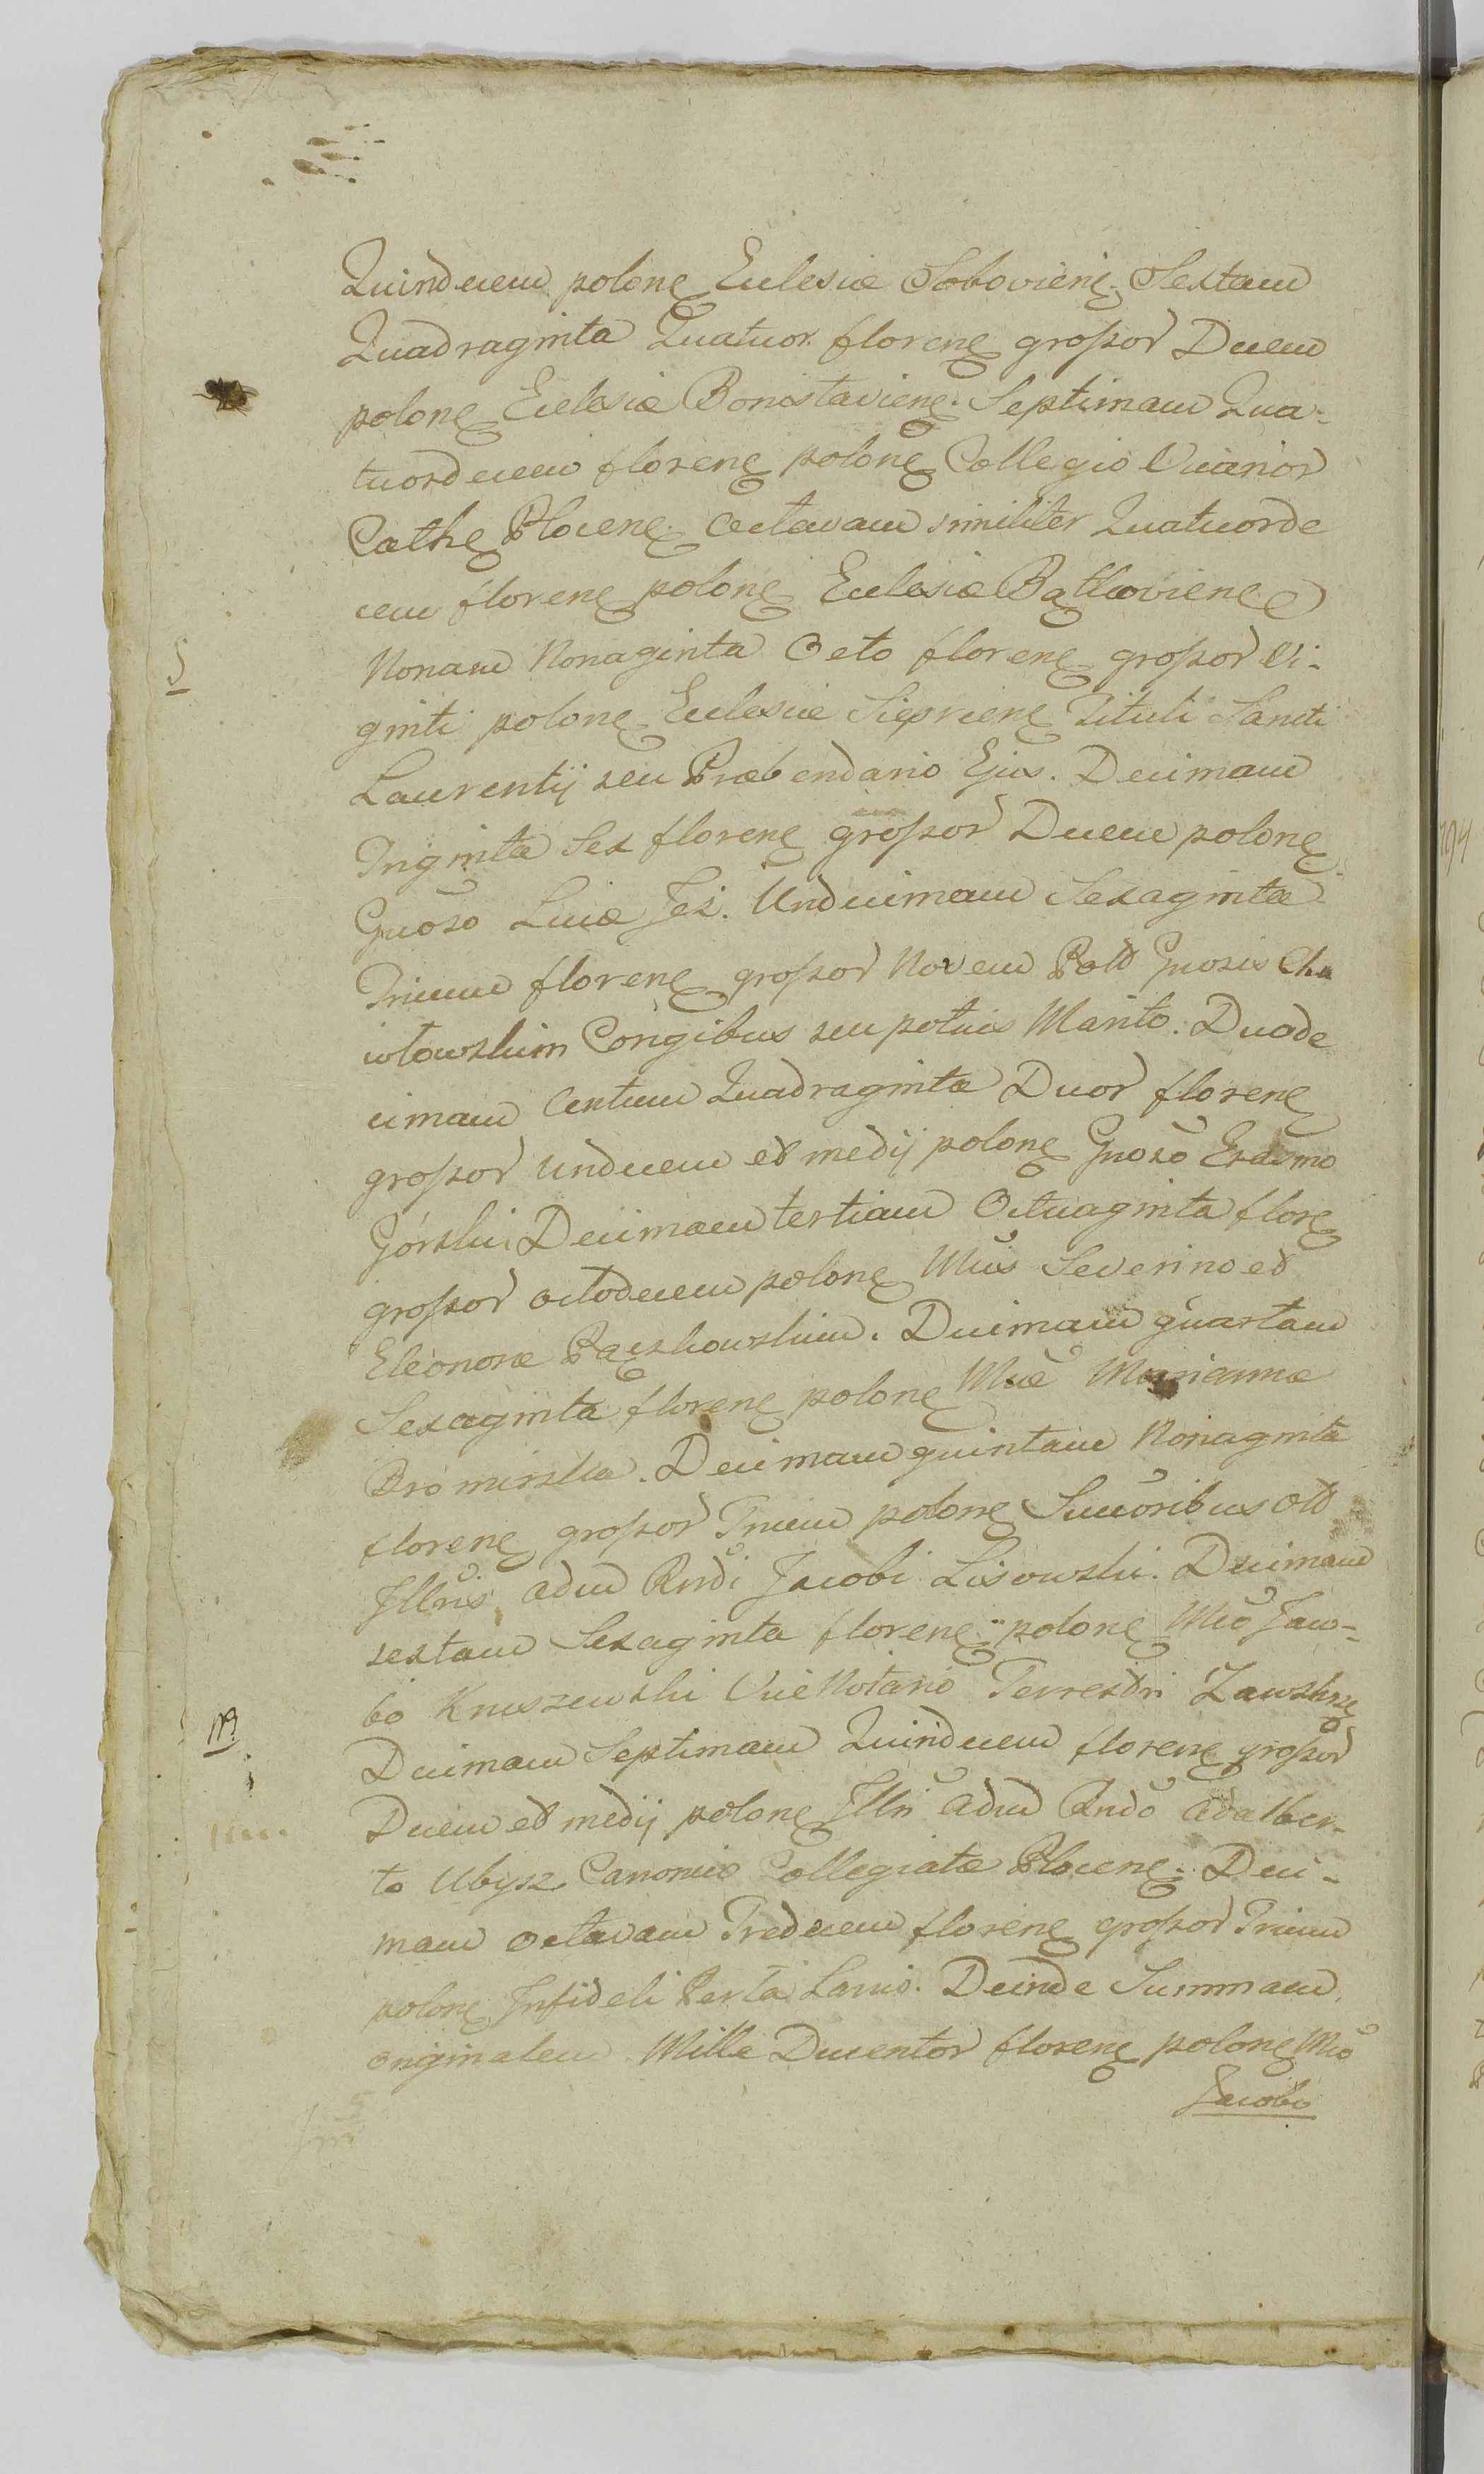 Quindecem polone Ecclesiæ Soboviene. Sextam
Quadraginta Quatuor florene grossor Decem
polone Ecclesiæ Bonislaviene. Septimam Qua-
tuordecem florene polone Collegio Vicarior
Cathe Plocene. Octavam similiter Quatuorde
cem florene polone Ecclesiæ
Nonam Nonaginta Octo florene grossor Vi-
ginti polone Ecclesiæ Sieprcene Tituli Sancti
Laurentij seu Præbendario Ejus. Decimam
Triginta Sex florene grossor Decem polone
Gnoso Lucæ Jeż. Undecimam Sexaginta
Trium florene grossor Novem Poll Gnosis Cha
Congibus seu potius Marito. Duode
cimam Centum Quadraginta Duor florene
grossor undecem et medij polone Gnoso Erasmo
Górski. Decimam tertiam Octuaginta flore
grossor octodecem polone Mcis Severino et
Eleonoræ. Decimam quartam
Sexaginta florene polone Mcæ Mariannæ
Bromirska. Decimam quintam Nonaginta
florene grossor Trium polone Succoribus olt
Illris adm Rndi Jacobi Lisowski. Decimam
sextam Sexaginta florene polone Mco Jaco-
bo Kruszewski Vice Notario Terrestri Zawskrze
Decimam Septimam Quindecem florene grossor
Decem et medij polone Illri adm Rndo Adalber-
to Ubysz Canonico Collegiatæ Plocene. Deci-
mam octavam Tredecem florene grossor Trium
polone Infideli Lanio. Deinde Summam
originalem Mille Ducentor florene polone Mco
Jacobo